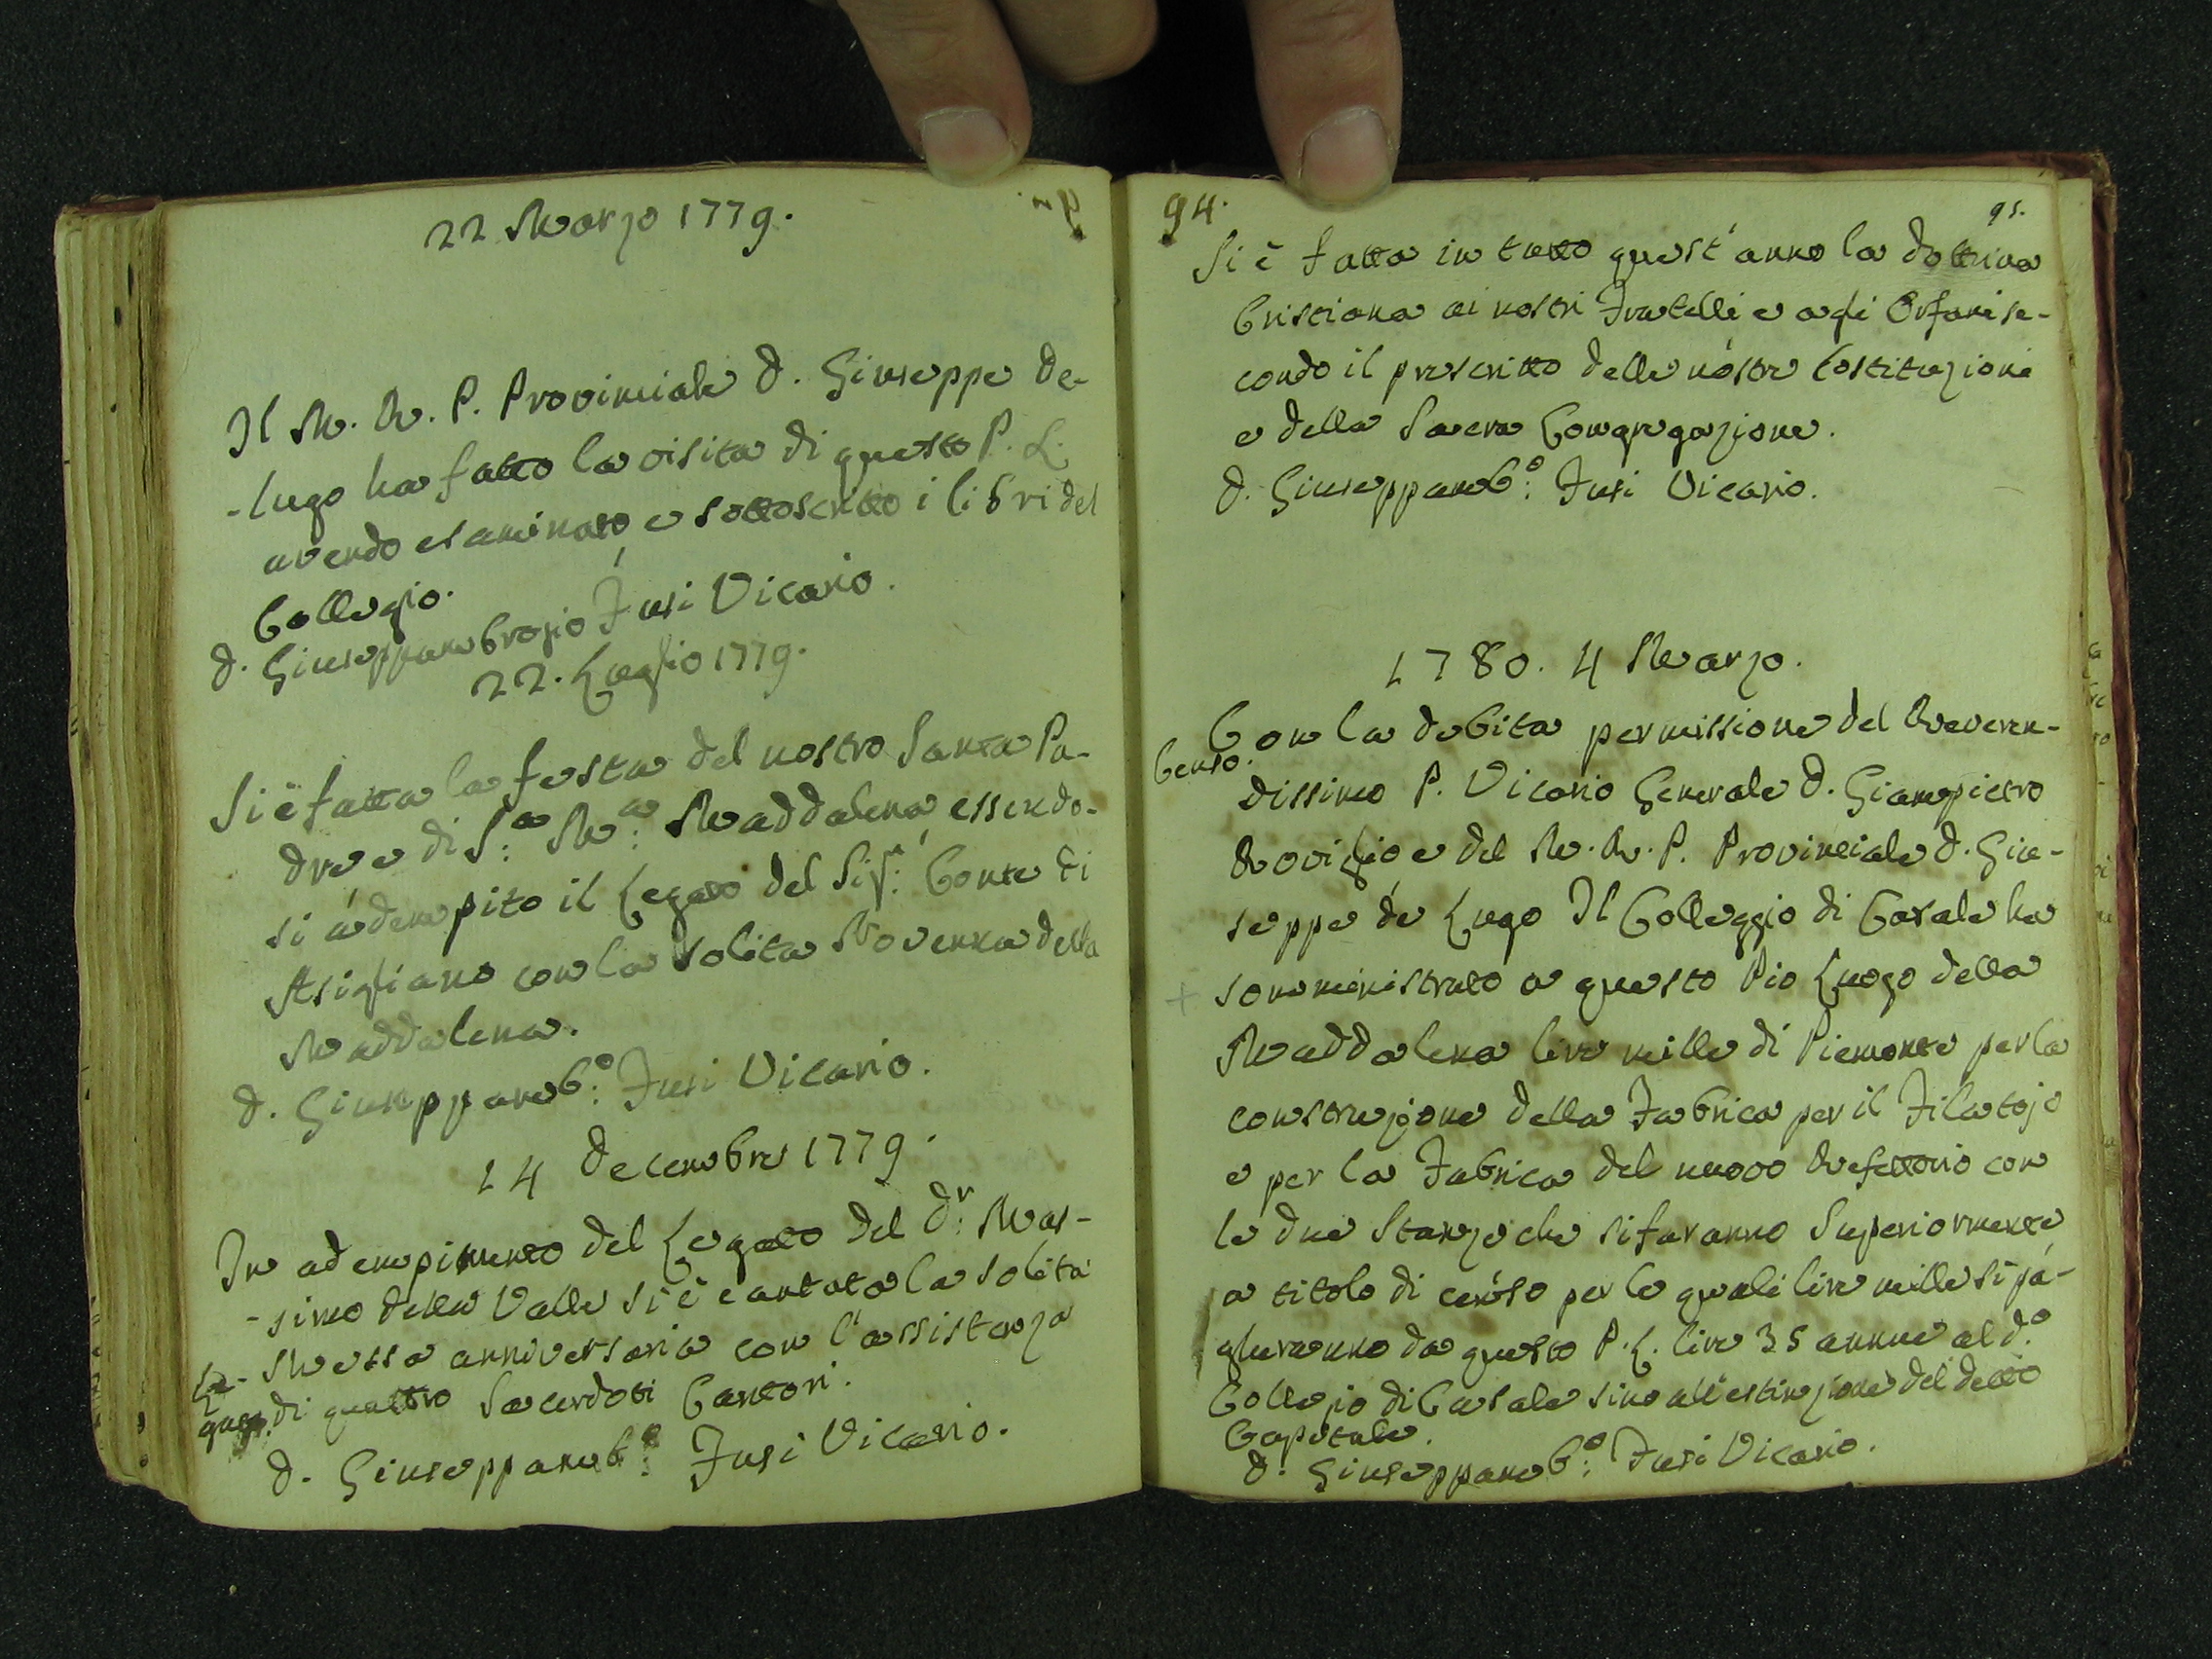 22 Marzo 1779.
Il M. R. P. Provinciale D. Giuseppe de-
-lugo ha fatto la visita di questo P. L.
avendo esaminato e sottoscritto i libri del
Collegio.
D. Giuseppambrogio Fusi Vicario.
22. Luglio 1779.
Si è fatta la festa del nostro Santo Pa-
dre e di S.a M.a: Maddalena, essendo-
si adempito il Legato del Sig.r: Conte di
Asigliano con la solita Novenna della
Maddalena.
D. Giuseppamb.o: Fusi Vicario.
14 Decembre 1779.
In adempimento del Legato del D.r: Mas-
-simo della Valle si è cantata la solita
Messa anniversaria con l'assistenza
di quattro Sacerdoti Cantori.
D. Giuseppamb.o: Fusi Vicario.
94.
95.
Si è fatta in tutto quest'anno la dottrina
Cristiana ai nostri Fratelli e agli Orfani se-
condo il prescritto delle nostre Costituzioni
e della Sacra Congregazione.
D. Giuseppamb.o: Fusi Vicario.
1780. 4 Marzo.
Censo.
Con la debita permissione del Reveren-
dissimo P. Vicario Generale D. Giampietro
Roviglio e del M. R. P. Provinciale D. Giu-
seppe de Lugo Il Colleggio di Casale ha
+ somministrato a questo Pio Luogo della
Maddalena lire mille di Piemonte per la
construzione della Fabrica per il Filatojo
e per la Fabrica del nuovo Refettorio con
le due Stanze che si faranno Superiormente
a titolo di censo per le quali lire mille si pa-
gheranno da questo P. L. lire 35 annue al d.o
Collegio di Casale sino all'estinzione del detto
Capitale.
D. Giuseppamb.o: Fusi Vicario.